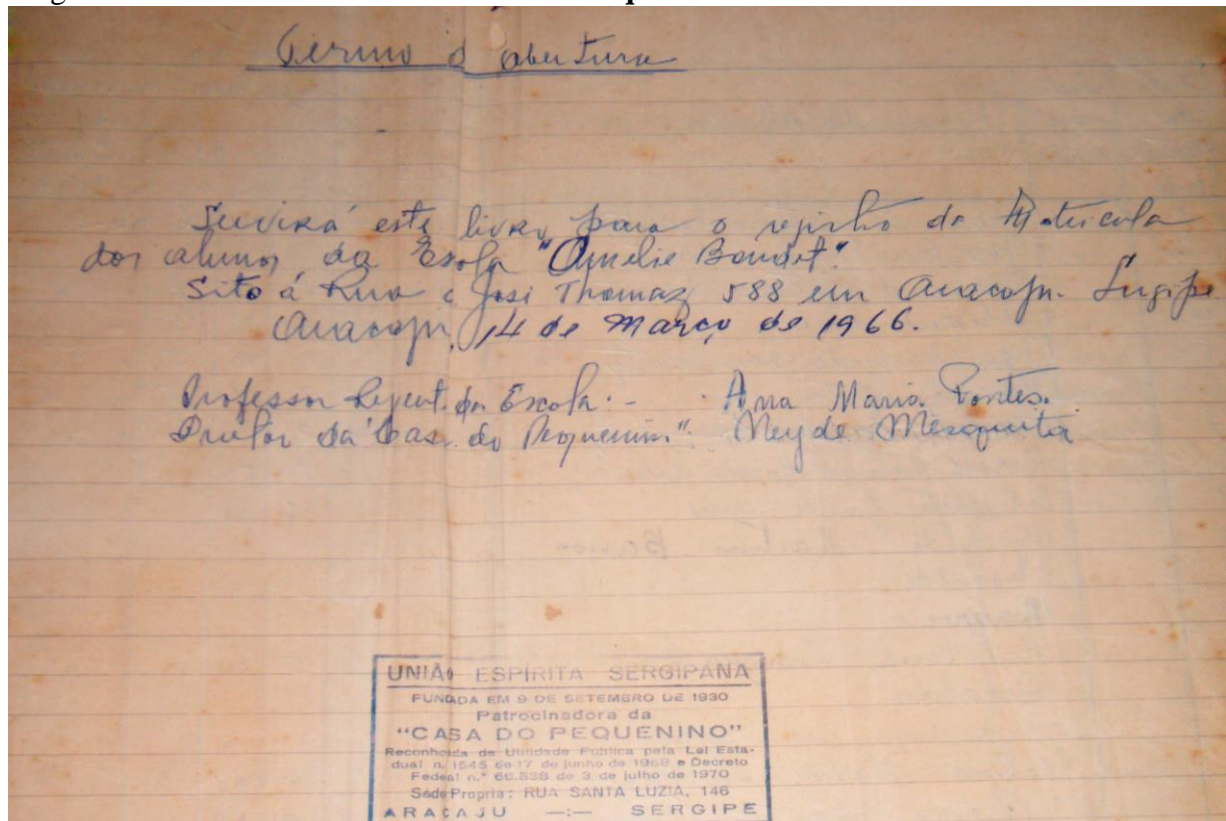 Termo d abertura
Servirá este livro para o registro da Matricula
dos alunos da Escola "Amélie Boudet".
Sito á Rua José Thomaz 588 em Aracaju. Sergipe
Aracaju, 14 de Março de 1966.
Professor Regent. da Escola. - Ana Maria Fontes.
da "Casa do Pequenino". Neyde Mesquita
UNIÃO ESPIRITA SERGIPANA
FUNDADA EM 9 DE SETEMBRO DE 1930
Patrocinadora da
"CASA DO PEQUENINO"
Reconhecida de Utilidade Publica pela Lei Esta-
dual n. 1545 de 17 de junho de 1968 e Decreto
Federal n.º 66.538 de 3 de julho de 1970
Séde Propria: RUA SANTA LUZIA, 146
ARACAJU —:— SERGIPE